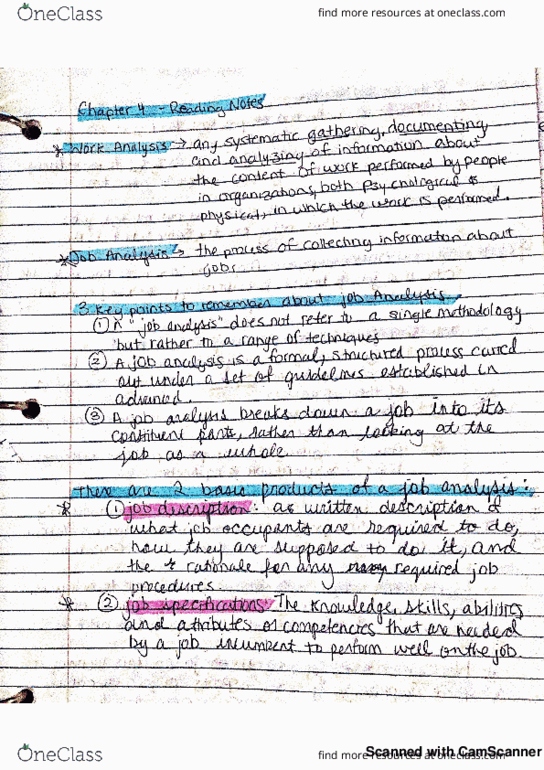 OneClass
find more resources at oneclass.com
Chapter 4 - Reading Notes
* Work Analysis → any systematic gathering, documenting
and analyzing of information about
the content of work performed by people
in organizations, both psychological &
physical, in which the work is performed.
* Job Analysis → the process of collecting information about
jobs
3 key points to remember about job Analysis
① A "job analysis" does not refer to a single methodology
but rather to a range of techniques
② A job analysis is a formal, structured process carried
out under a set of guidelines established in
advanced.
③ A job analysis breaks down a job into its
constituent parts, rather than looking at the
job as a whole
There are 2 basic products of a job analysis:
* ① job discription: as written description of
what job occupants are required to do,
how they are supposed to do it, and
the rationale for any required job
procedures
* ② job specifications The knowledge, skills, abilities
and attributes or competencies that are needed
by a job incumbent to perform well on the job
OneClass
find more resources at oneclass.com
Scanned with CamScanner